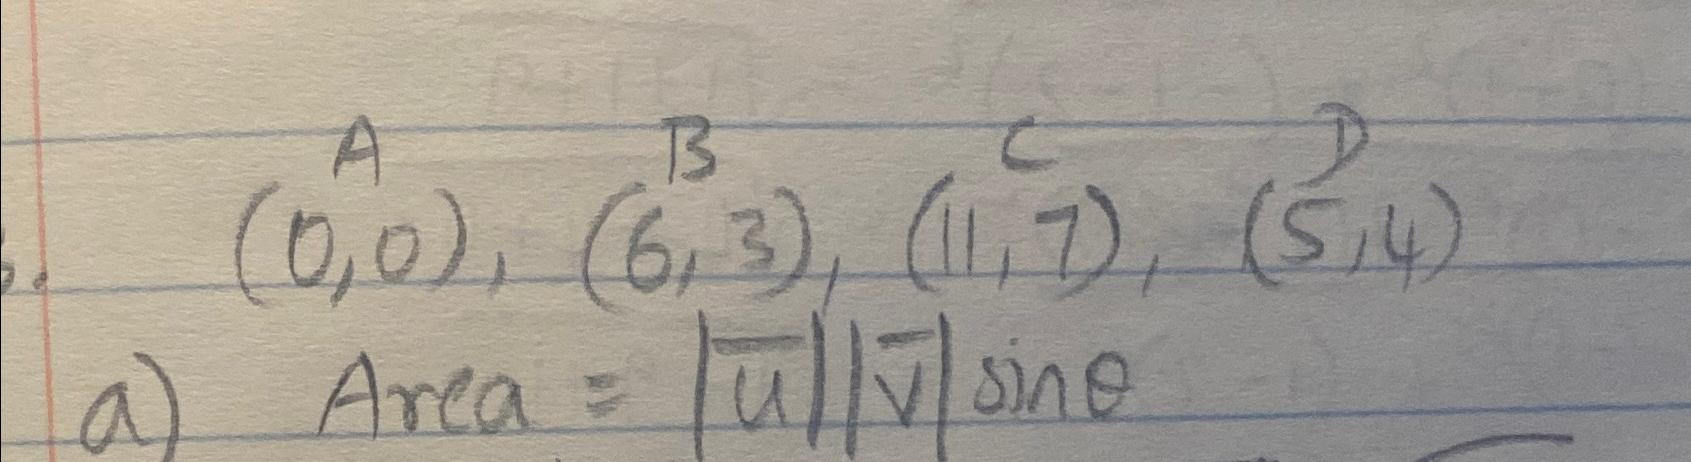 A B C D
(0,0), (6,3), (11,7), (5,4)
a) Area = |u̅||v̅| sinθ